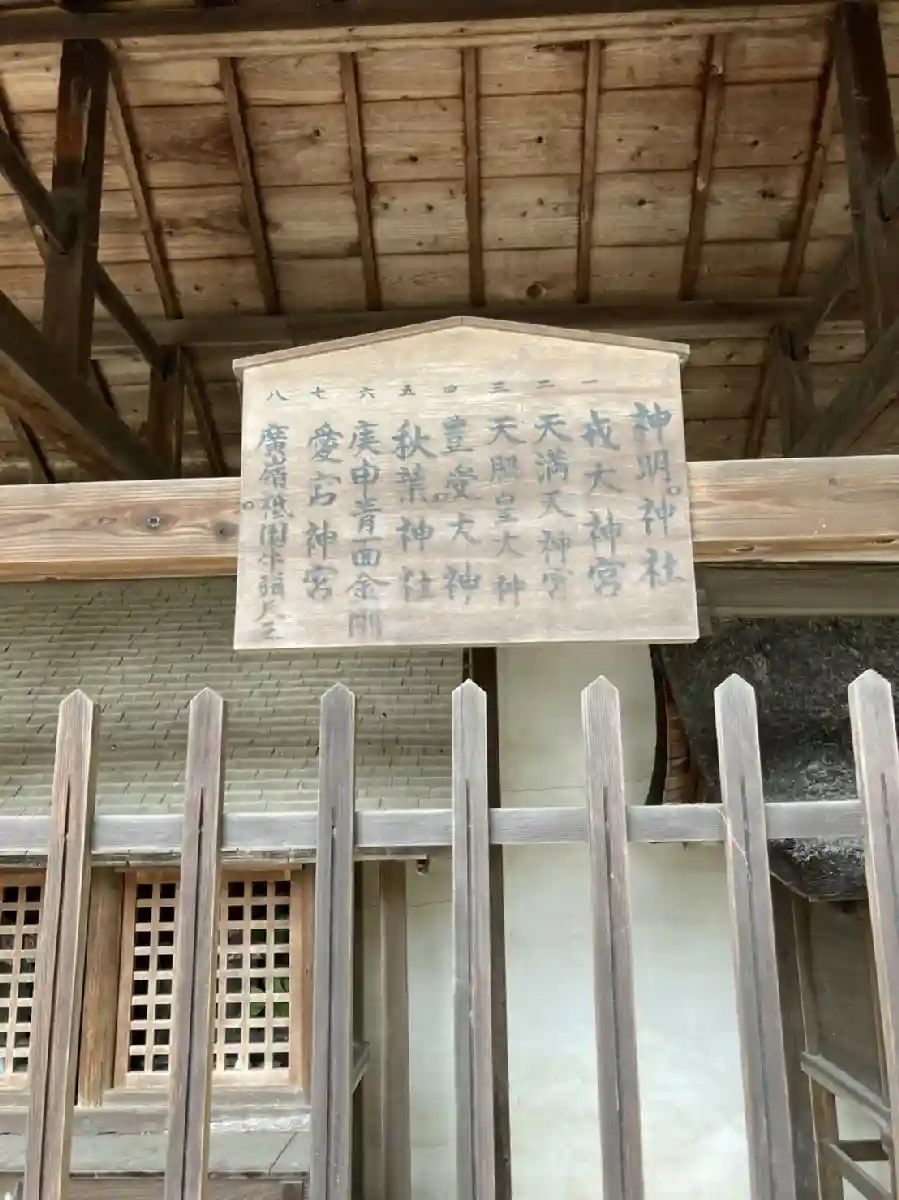 神明神社
一 戎大神宮
二 天満天神宮
三 天照皇大神
四 豊受大神
五 秋葉神社
六 庚申青面金剛
七 愛宕神宮
八 廣嶺祗園牛頭天王